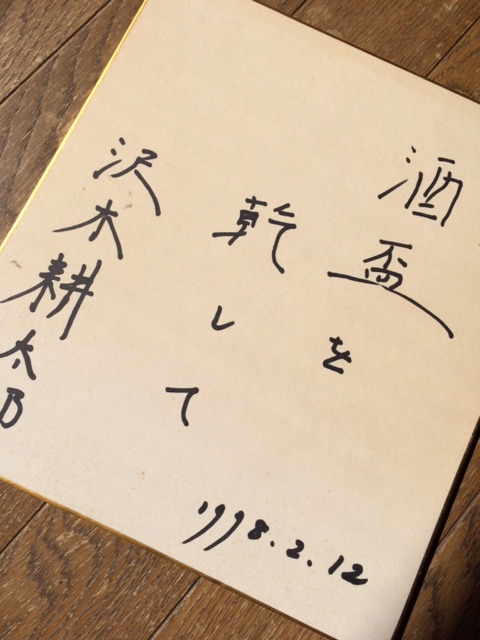 酒盃を
乾して
沢木耕太郎
1998.2.12